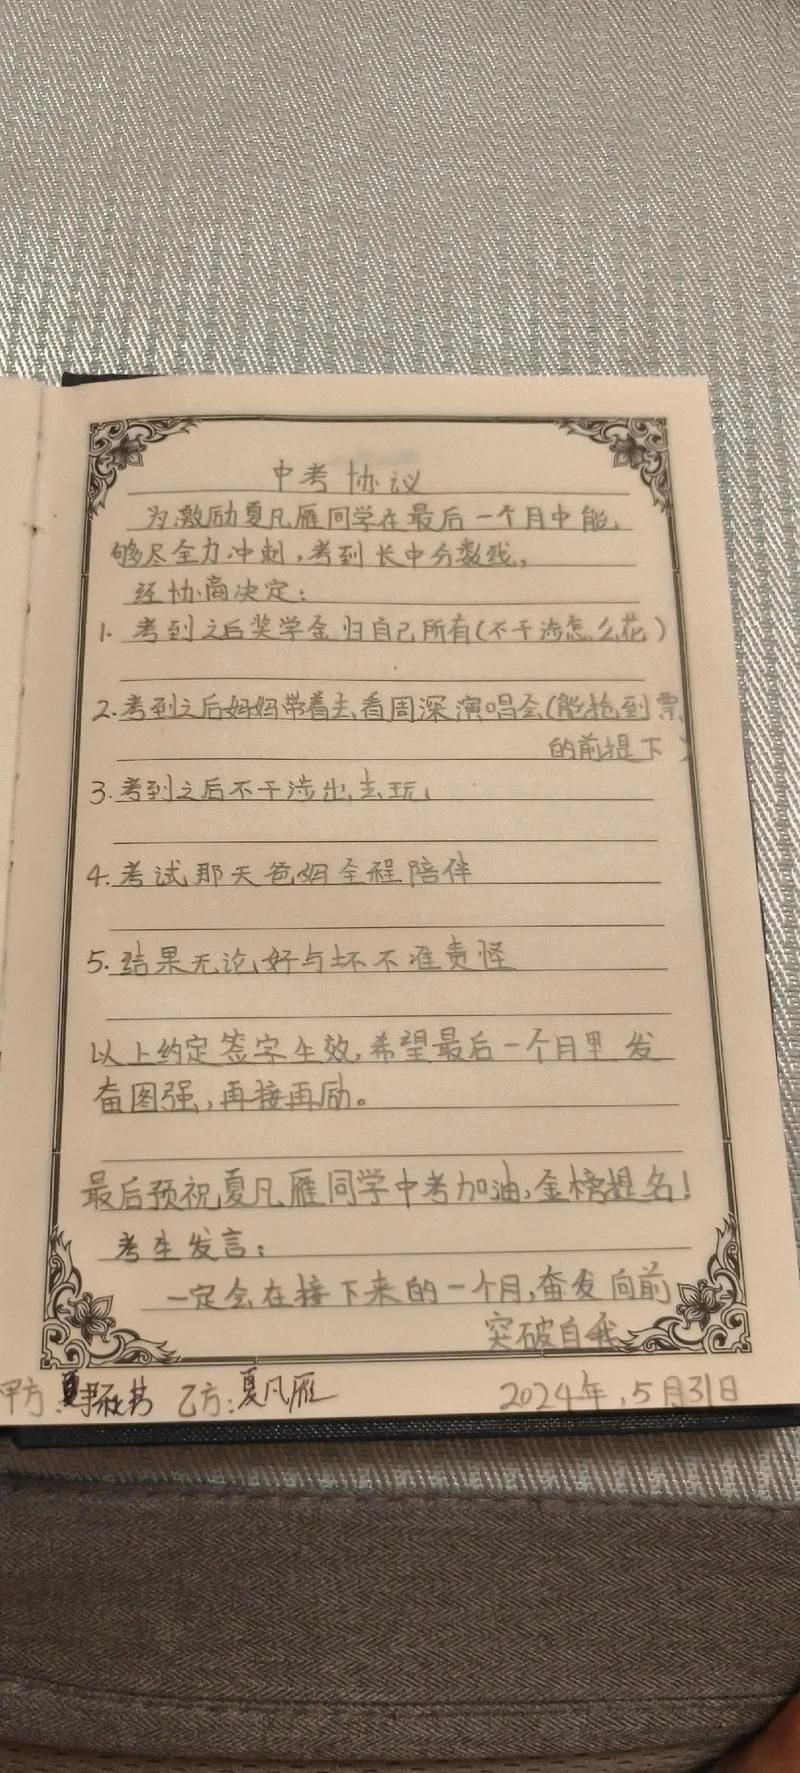 中考协议
为激励夏凡雁同学在最后一个月中能,
够尽全力冲刺,考到长中分数线,
经协商决定:
1. 考到之后奖学金归自己所有(不干涉怎么花)
2. 考到之后妈妈带着去看周深演唱会(能抢到票
的前提下)
3. 考到之后不干涉出去玩,
4. 考试那天爸妈全程陪伴
5. 结果无论好与坏不准责怪
以上约定签字生效,希望最后一个月里 发
奋图强,再接再励。
最后预祝夏凡雁同学中考加油,金榜提名!
考生发言:
一定会在接下来的一个月,奋发向前
突破自我
甲方: 乙方:夏凡雁 2024年,5月31日